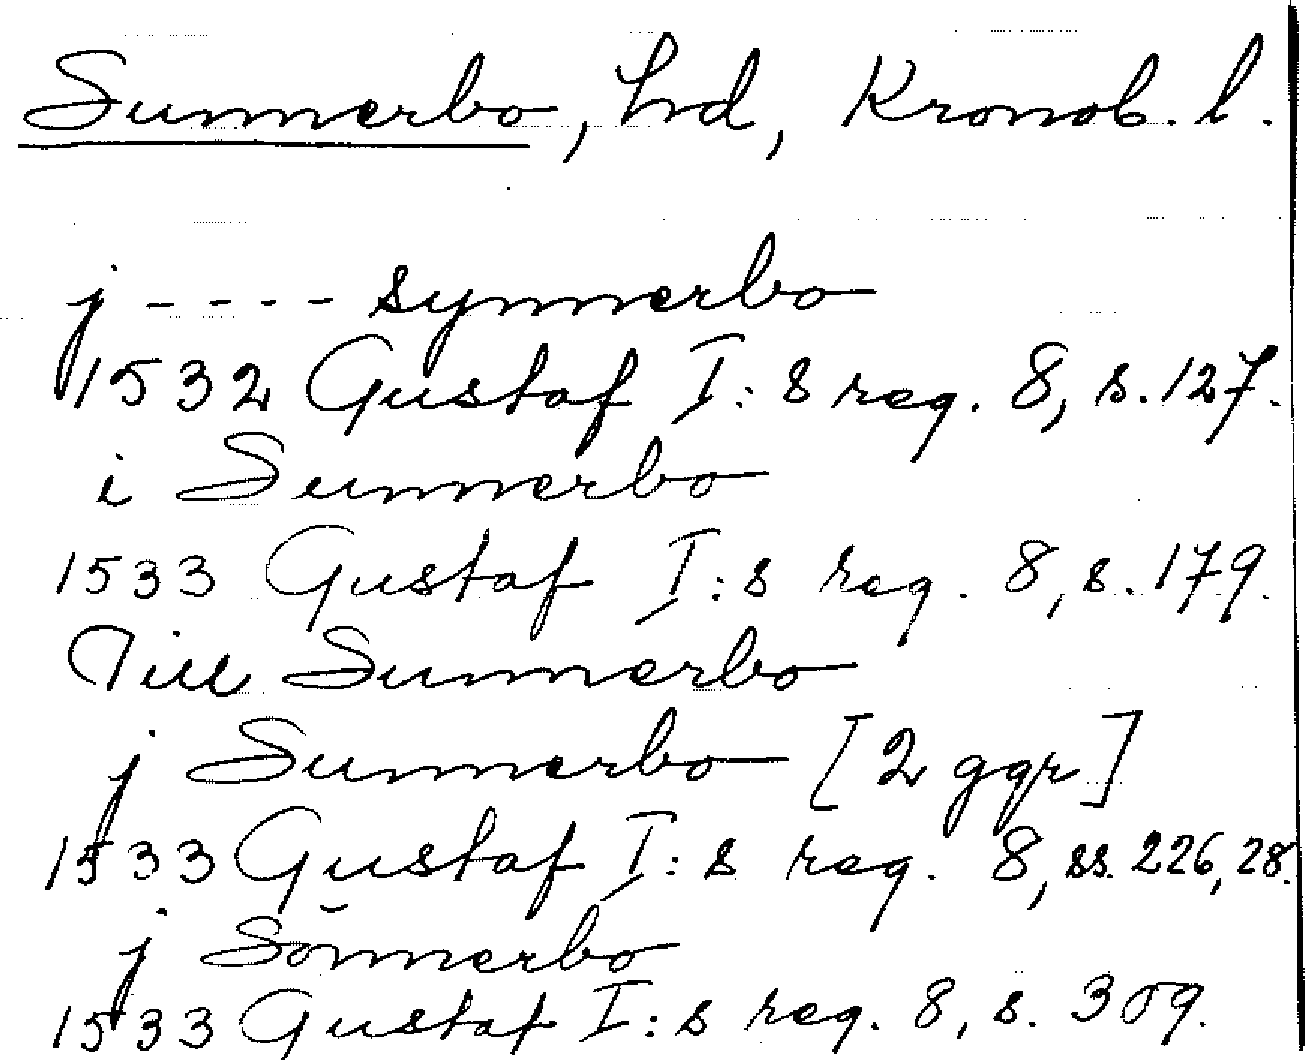 Sunnerbo, hd, Kronob. l.
j - - - - synnerbo
1532 Gustaf I:s reg. 8, s. 127.
i Sunnerbo
1533 Gustaf I:s reg. 8, s. 179.
Till Sunnerbo
j Sunnerbo [2 ggr]
1533 Gustaf I:s reg. 8, ss. 226, 28.
j Sŏnnerbo
1533 Gustaf I:s reg. 8, s. 309.